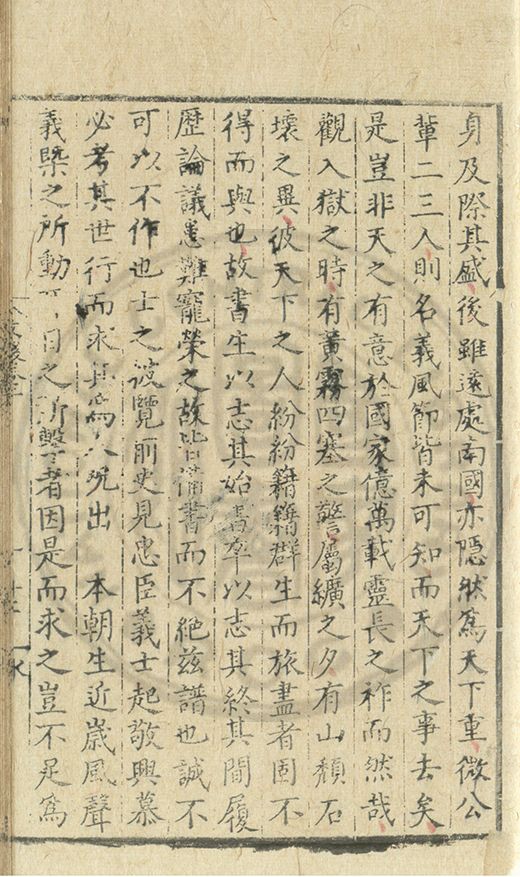 身及際其盛後雖遠處南國亦隱然爲天下重微公
輩二三人則名義風節皆未可知而天下之事去矣
是豈非天之有意於國家億萬載靈長之祚而然哉
觀入獄之時有黃霧四塞之警屬纊之夕有山頹石
壞之異彼天下之人紛紛籍籍群生而旅盡者固不
得而與也故書生以志其始書卒以志其終其間履
歷論議患難寵榮之故皆備書而不絕茲譜也誠不
可以不作也士之披覽前史見忠臣義士起敬興慕
必考其世行而求其爲人況出 本朝生近歲風聲
義槩之所動 目之所擊者因是而求之豈不足爲